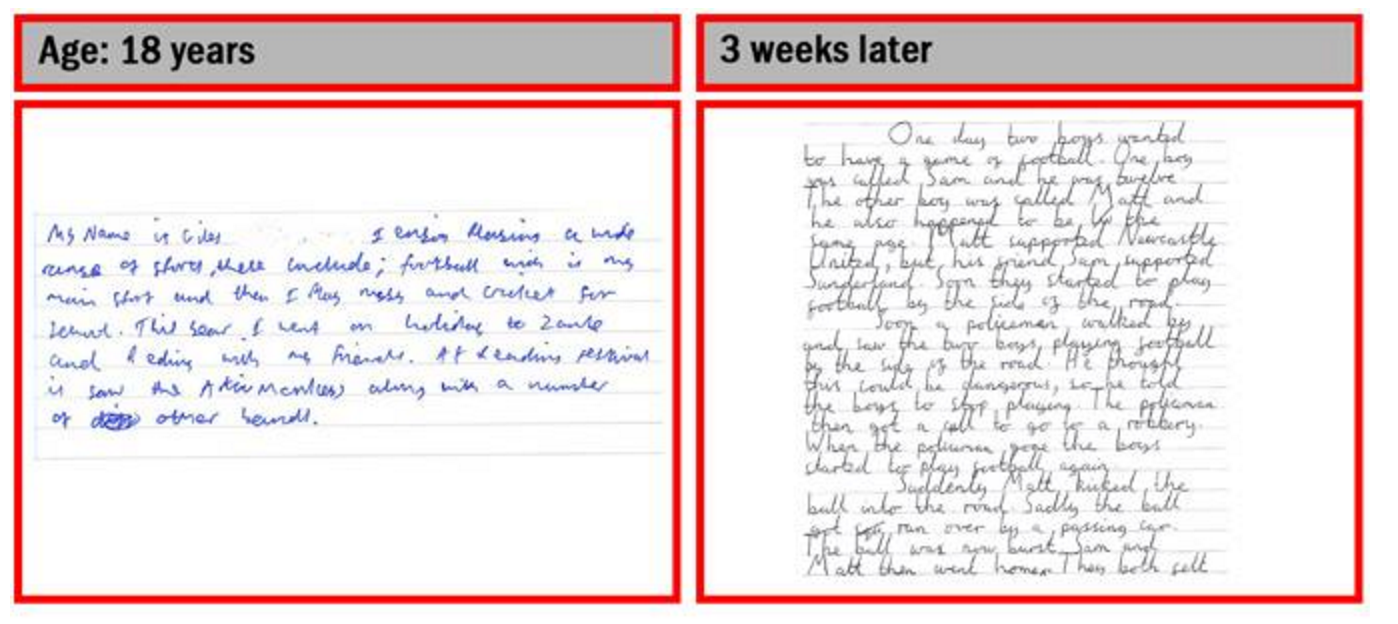 Age: 18 years
My Name is Giles I enjoy Playing a wide
range of sports, these include; football wich is my
main sport and then I Play and cricket for
School. This year I went on holiday to Zante
and Reding with my friends. At Reading festival
is saw the Artic Monkeys along with a number
of other bands.
3 weeks later
One day two boys wanted
to have a game of football. One boy
was called Sam and he was twelve.
The other boy was called Matt and
he also happened to be the
same age. Matt supported Newcastle
United, but his friend Sam supported
Sunderland. Soon they started to play
football by the side of the road.
Soon a policeman walked by
and saw the two boys playing football
by the side of the road. He thought
this could be dangerous, so he told
the boys to stop playing. The policeman
then got a call to go to a robbery.
When the policeman gone the boys
started to play football again
Suddenly Matt kicked the
ball into the road. Sadly the ball
got ran over by a passing car.
The ball was now burst. Sam and
Matt then went home. They both felt